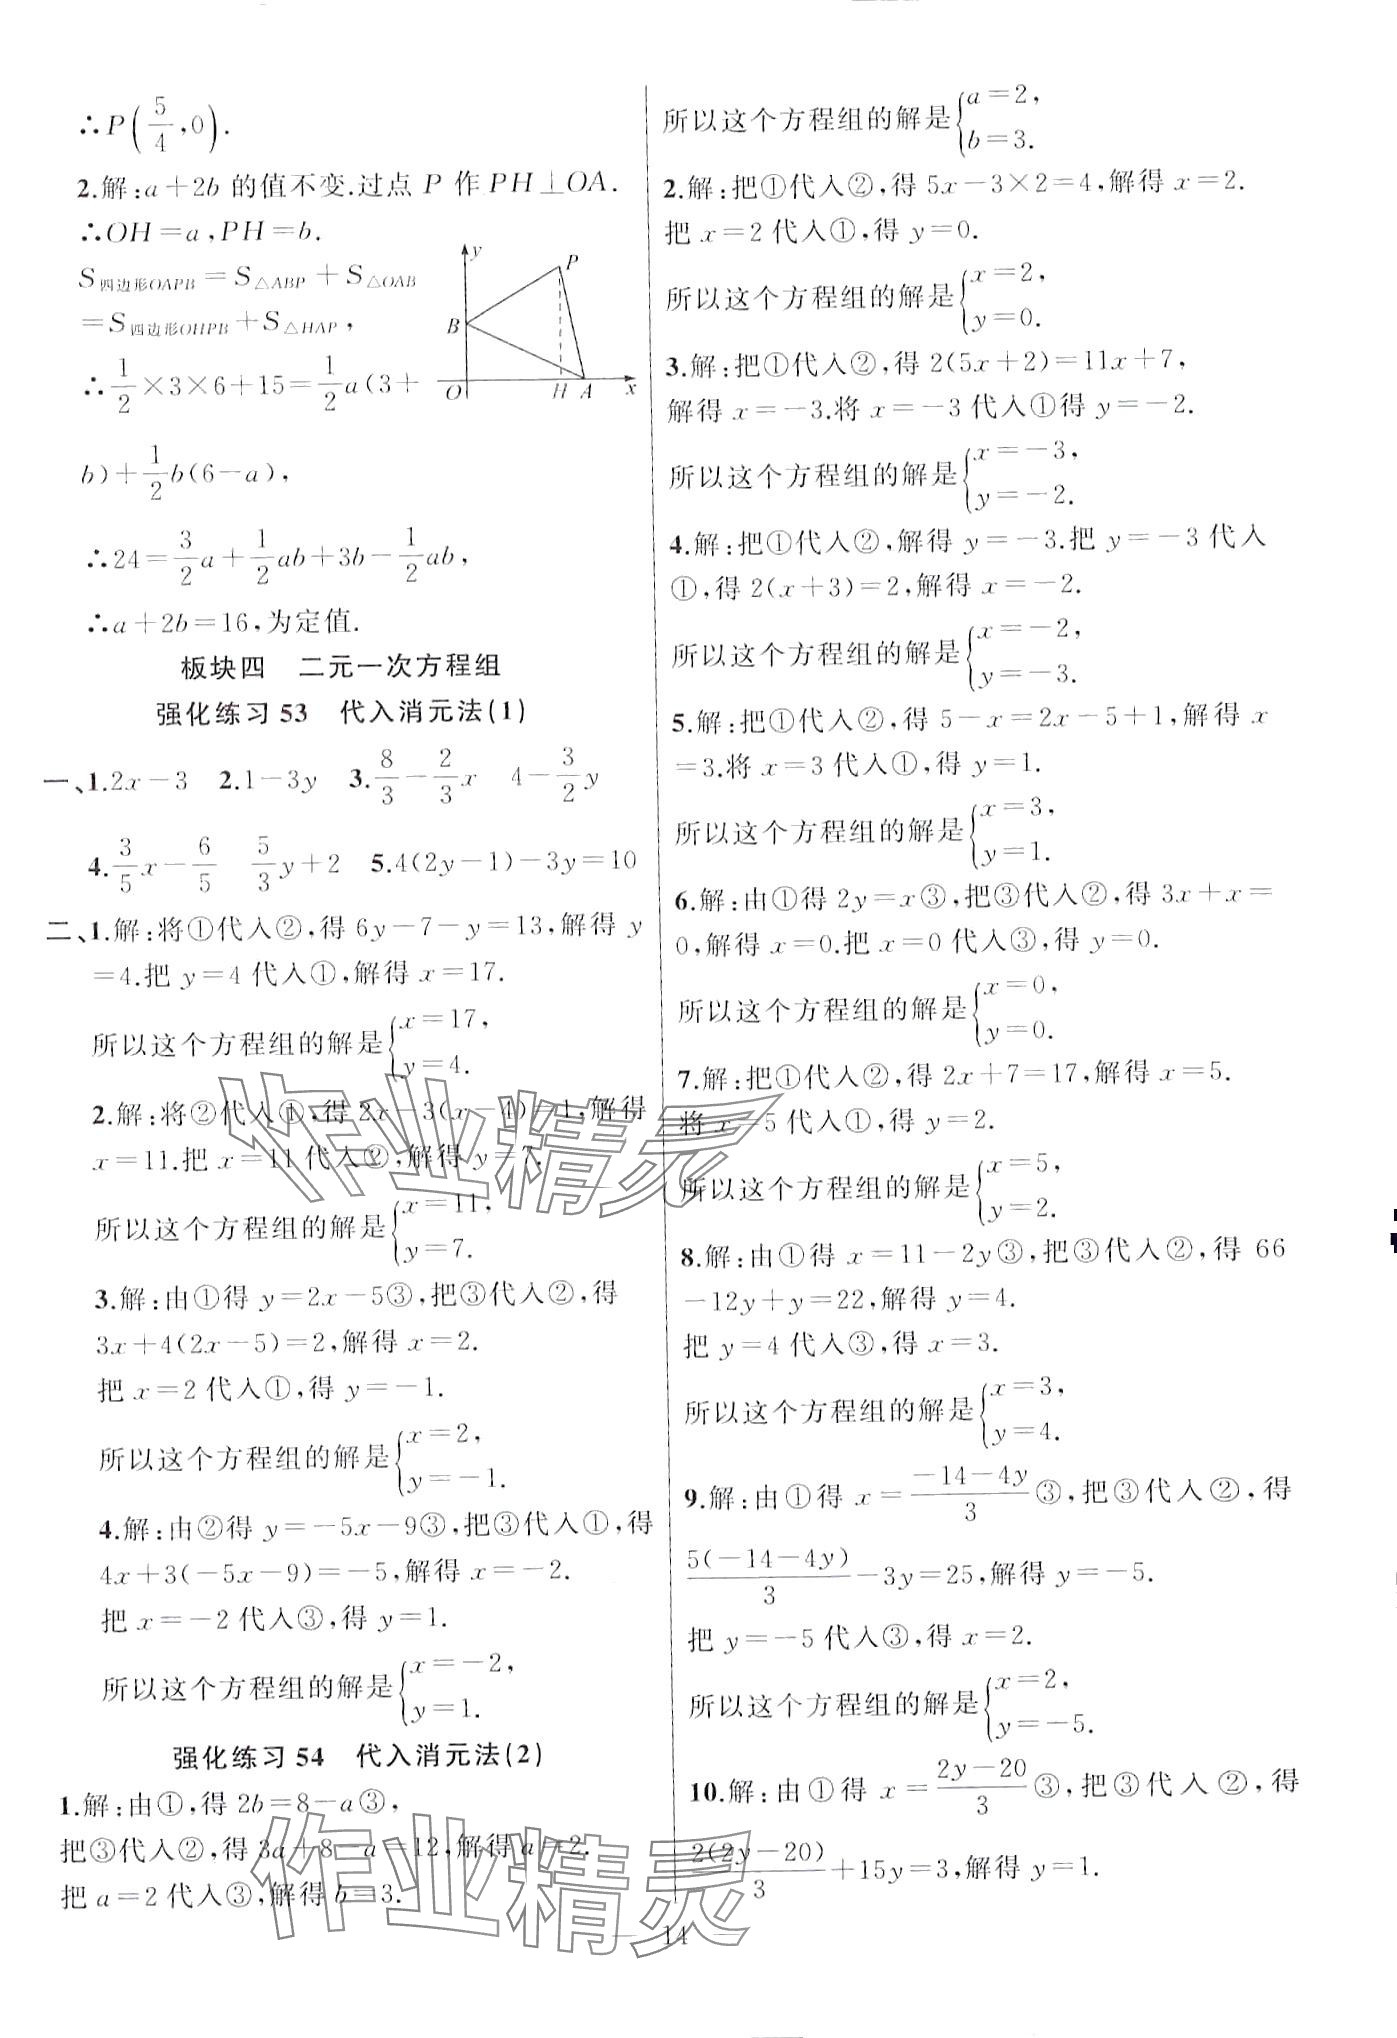 ∴P(5/4,0).
2.解:a+2b 的值不变.过点 P 作 PH⊥OA.
∴OH=a,PH=b.
S四边形OAPB=S△ABP+S△OAB
=S四边形OHPB+S△HAP,
∴1/2×3×6+15=1/2a(3+
b)+1/2b(6-a),
y
P
B
O
H
A
x
∴24=3/2a+1/2ab+3b-1/2ab,
∴a+2b=16,为定值.
板块四 二元一次方程组
强化练习 53 代入消元法(1)
一、1.2x-3 2.1-3y 3.8/3-2/3x 4-3/2y
4.3/5x-6/5 5/3y+2 5.4(2y-1)-3y=10
二、1.解:将①代入②,得 6y-7-y=13,解得 y
=4.把 y=4 代入①,解得 x=17.
所以这个方程组的解是{x=17,
y=4.
2.解:将②代入①,得 2x-3(x-4)=1,解得
x=11.把 x=11 代入②,解得 y=7.
所以这个方程组的解是{x=11,
y=7.
3.解:由①得 y=2x-5③,把③代入②,得
3x+4(2x-5)=2,解得 x=2.
把 x=2 代入①,得 y=-1.
所以这个方程组的解是{x=2,
y=-1.
4.解:由②得 y=-5x-9③,把③代入①,得
4x+3(-5x-9)=-5,解得 x=-2.
把 x=-2 代入③,得 y=1.
所以这个方程组的解是{x=-2,
y=1.
强化练习 54 代入消元法(2)
1.解:由①,得 2b=8-a③,
把③代入②,得 3a+8-a=12,解得 a=2.
把 a=2 代入③,解得 b=3.
所以这个方程组的解是{a=2,
b=3.
2.解:把①代入②,得 5x-3×2=4,解得 x=2.
把 x=2 代入①,得 y=0.
所以这个方程组的解是{x=2,
y=0.
3.解:把①代入②,得 2(5x+2)=11x+7,
解得 x=-3.将 x=-3 代入①得 y=-2.
所以这个方程组的解是{x=-3,
y=-2.
4.解:把①代入②,解得 y=-3.把 y=-3 代入
①,得 2(x+3)=2,解得 x=-2.
所以这个方程组的解是{x=-2,
y=-3.
5.解:把①代入②,得 5-x=2x-5+1,解得 x
=3.将 x=3 代入①,得 y=1.
所以这个方程组的解是{x=3,
y=1.
6.解:由①得 2y=x③,把③代入②,得 3x+x=
0,解得 x=0.把 x=0 代入③,得 y=0.
所以这个方程组的解是{x=0,
y=0.
7.解:把①代入②,得 2x+7=17,解得 x=5.
将 x=5 代入①,得 y=2.
所以这个方程组的解是{x=5,
y=2.
8.解:由①得 x=11-2y③,把③代入②,得 66
-12y+y=22,解得 y=4.
把 y=4 代入③,得 x=3.
所以这个方程组的解是{x=3,
y=4.
9.解:由①得 x=(-14-4y)/3③,把③代入②,得
5(-14-4y)/3-3y=25,解得 y=-5.
把 y=-5 代入③,得 x=2.
所以这个方程组的解是{x=2,
y=-5.
10.解:由①得 x=(2y-20)/3③,把③代入②,得
2(2y-20)/3+15y=3,解得 y=1.
— 14 —
作业精灵
作业精灵